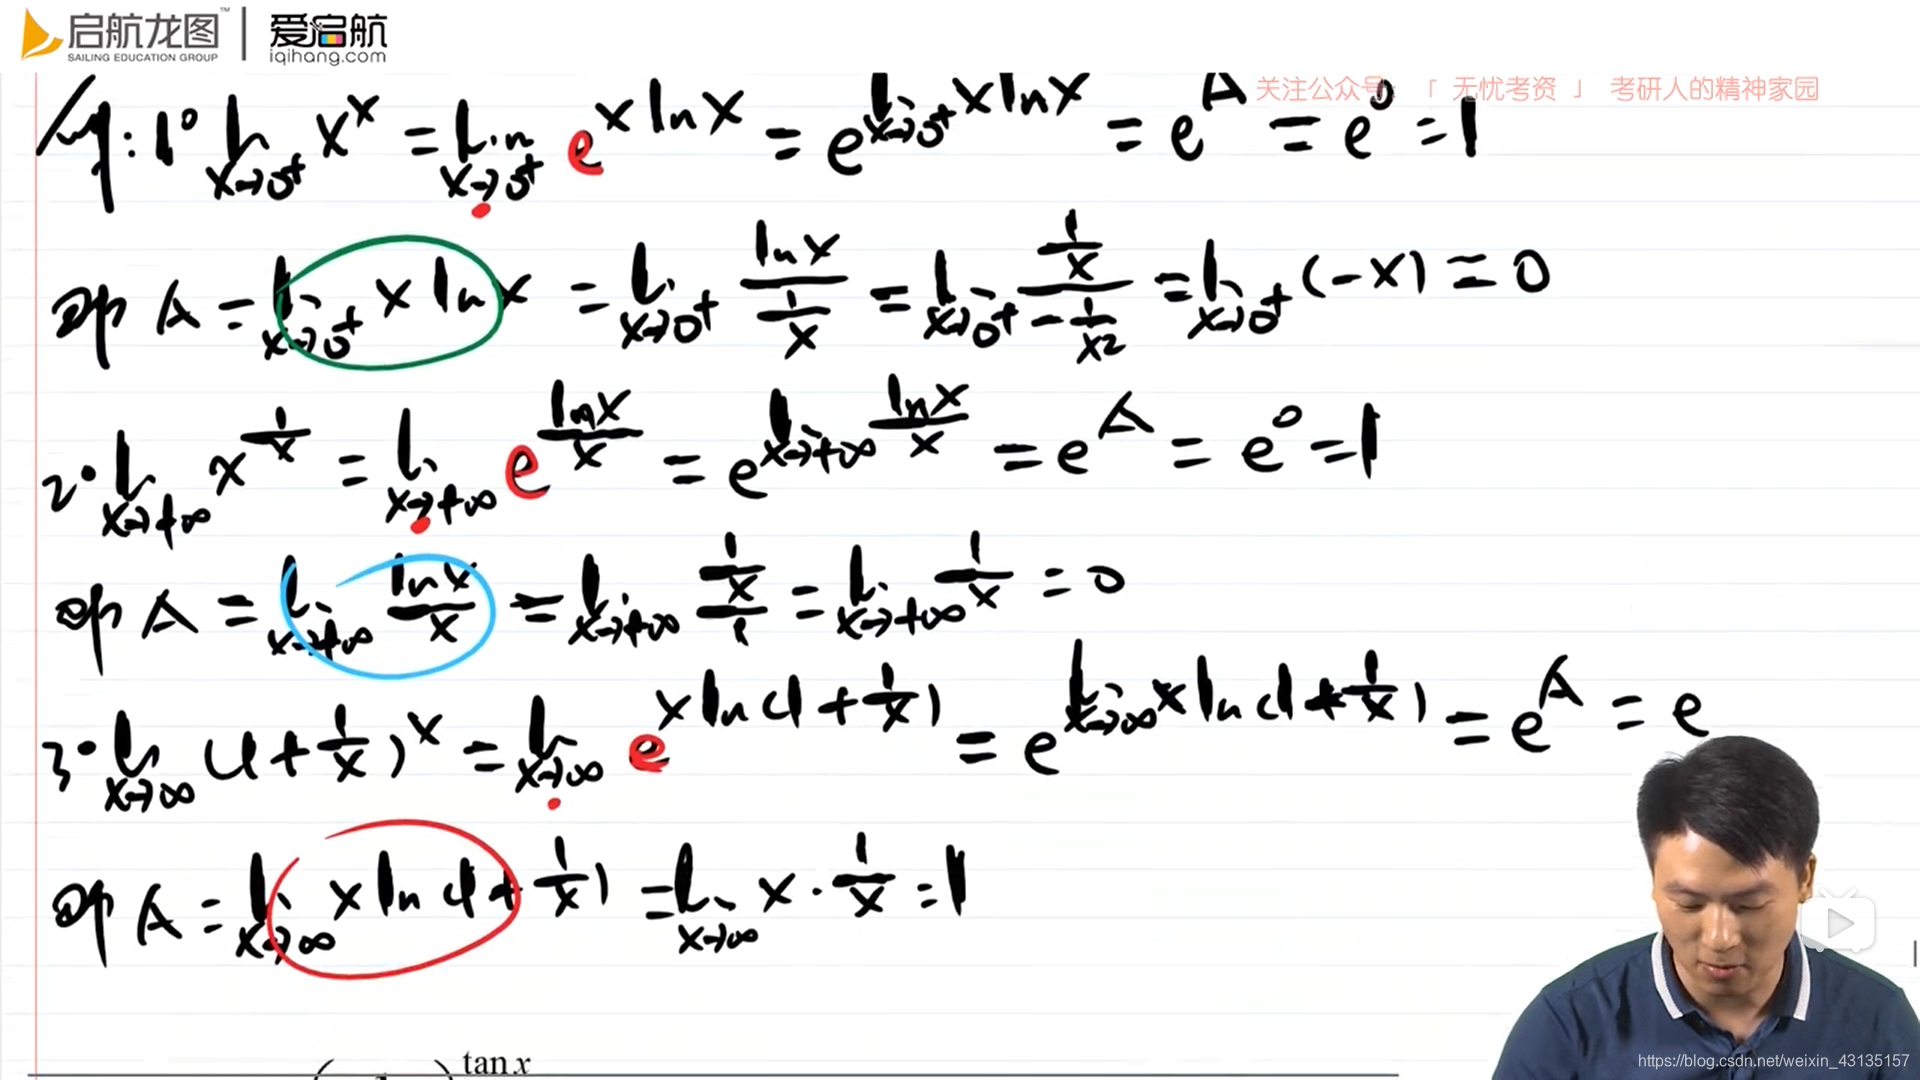 启航龙图™ | 爱启航
SAILING EDUCATION GROUP iqihang.com
关注公众号：「 无忧考资 」 考研人的精神家园
例: 1° lim x→0⁺ x^x = lim x→0⁺ e^(x ln x) = e^(lim x→0⁺ x ln x) = e^A = e^0 = 1
A = lim x→0⁺ x ln x = lim x→0⁺ (ln x)/(1/x) = lim x→0⁺ (1/x)/(-1/x²) = lim x→0⁺ (-x) = 0
2° lim x→+∞ x^(1/x) = lim x→+∞ e^(ln x/x) = e^(lim x→+∞ ln x/x) = e^A = e^0 = 1
A = lim x→+∞ (ln x)/x = lim x→+∞ (1/x)/1 = lim x→+∞ 1/x = 0
3° lim x→∞ (1+1/x)^x = lim x→∞ e^(x ln(1+1/x)) = e^(lim x→∞ x ln(1+1/x)) = e^A = e
A = lim x→∞ x ln(1+1/x) = lim x→∞ x·1/x = 1
tan x
https://blog.csdn.net/weixin_43135157